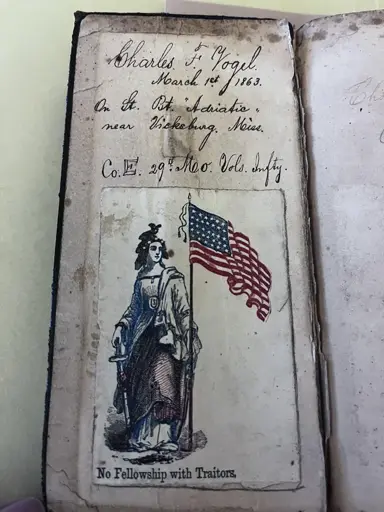 Charles F Vogel.
March 1st 1863.
On St. Bt. "Adriatic"
near Vicksburg, Miss.
Co. E. 29th Mo. Vols. Infty.
No Fellowship with Traitors.